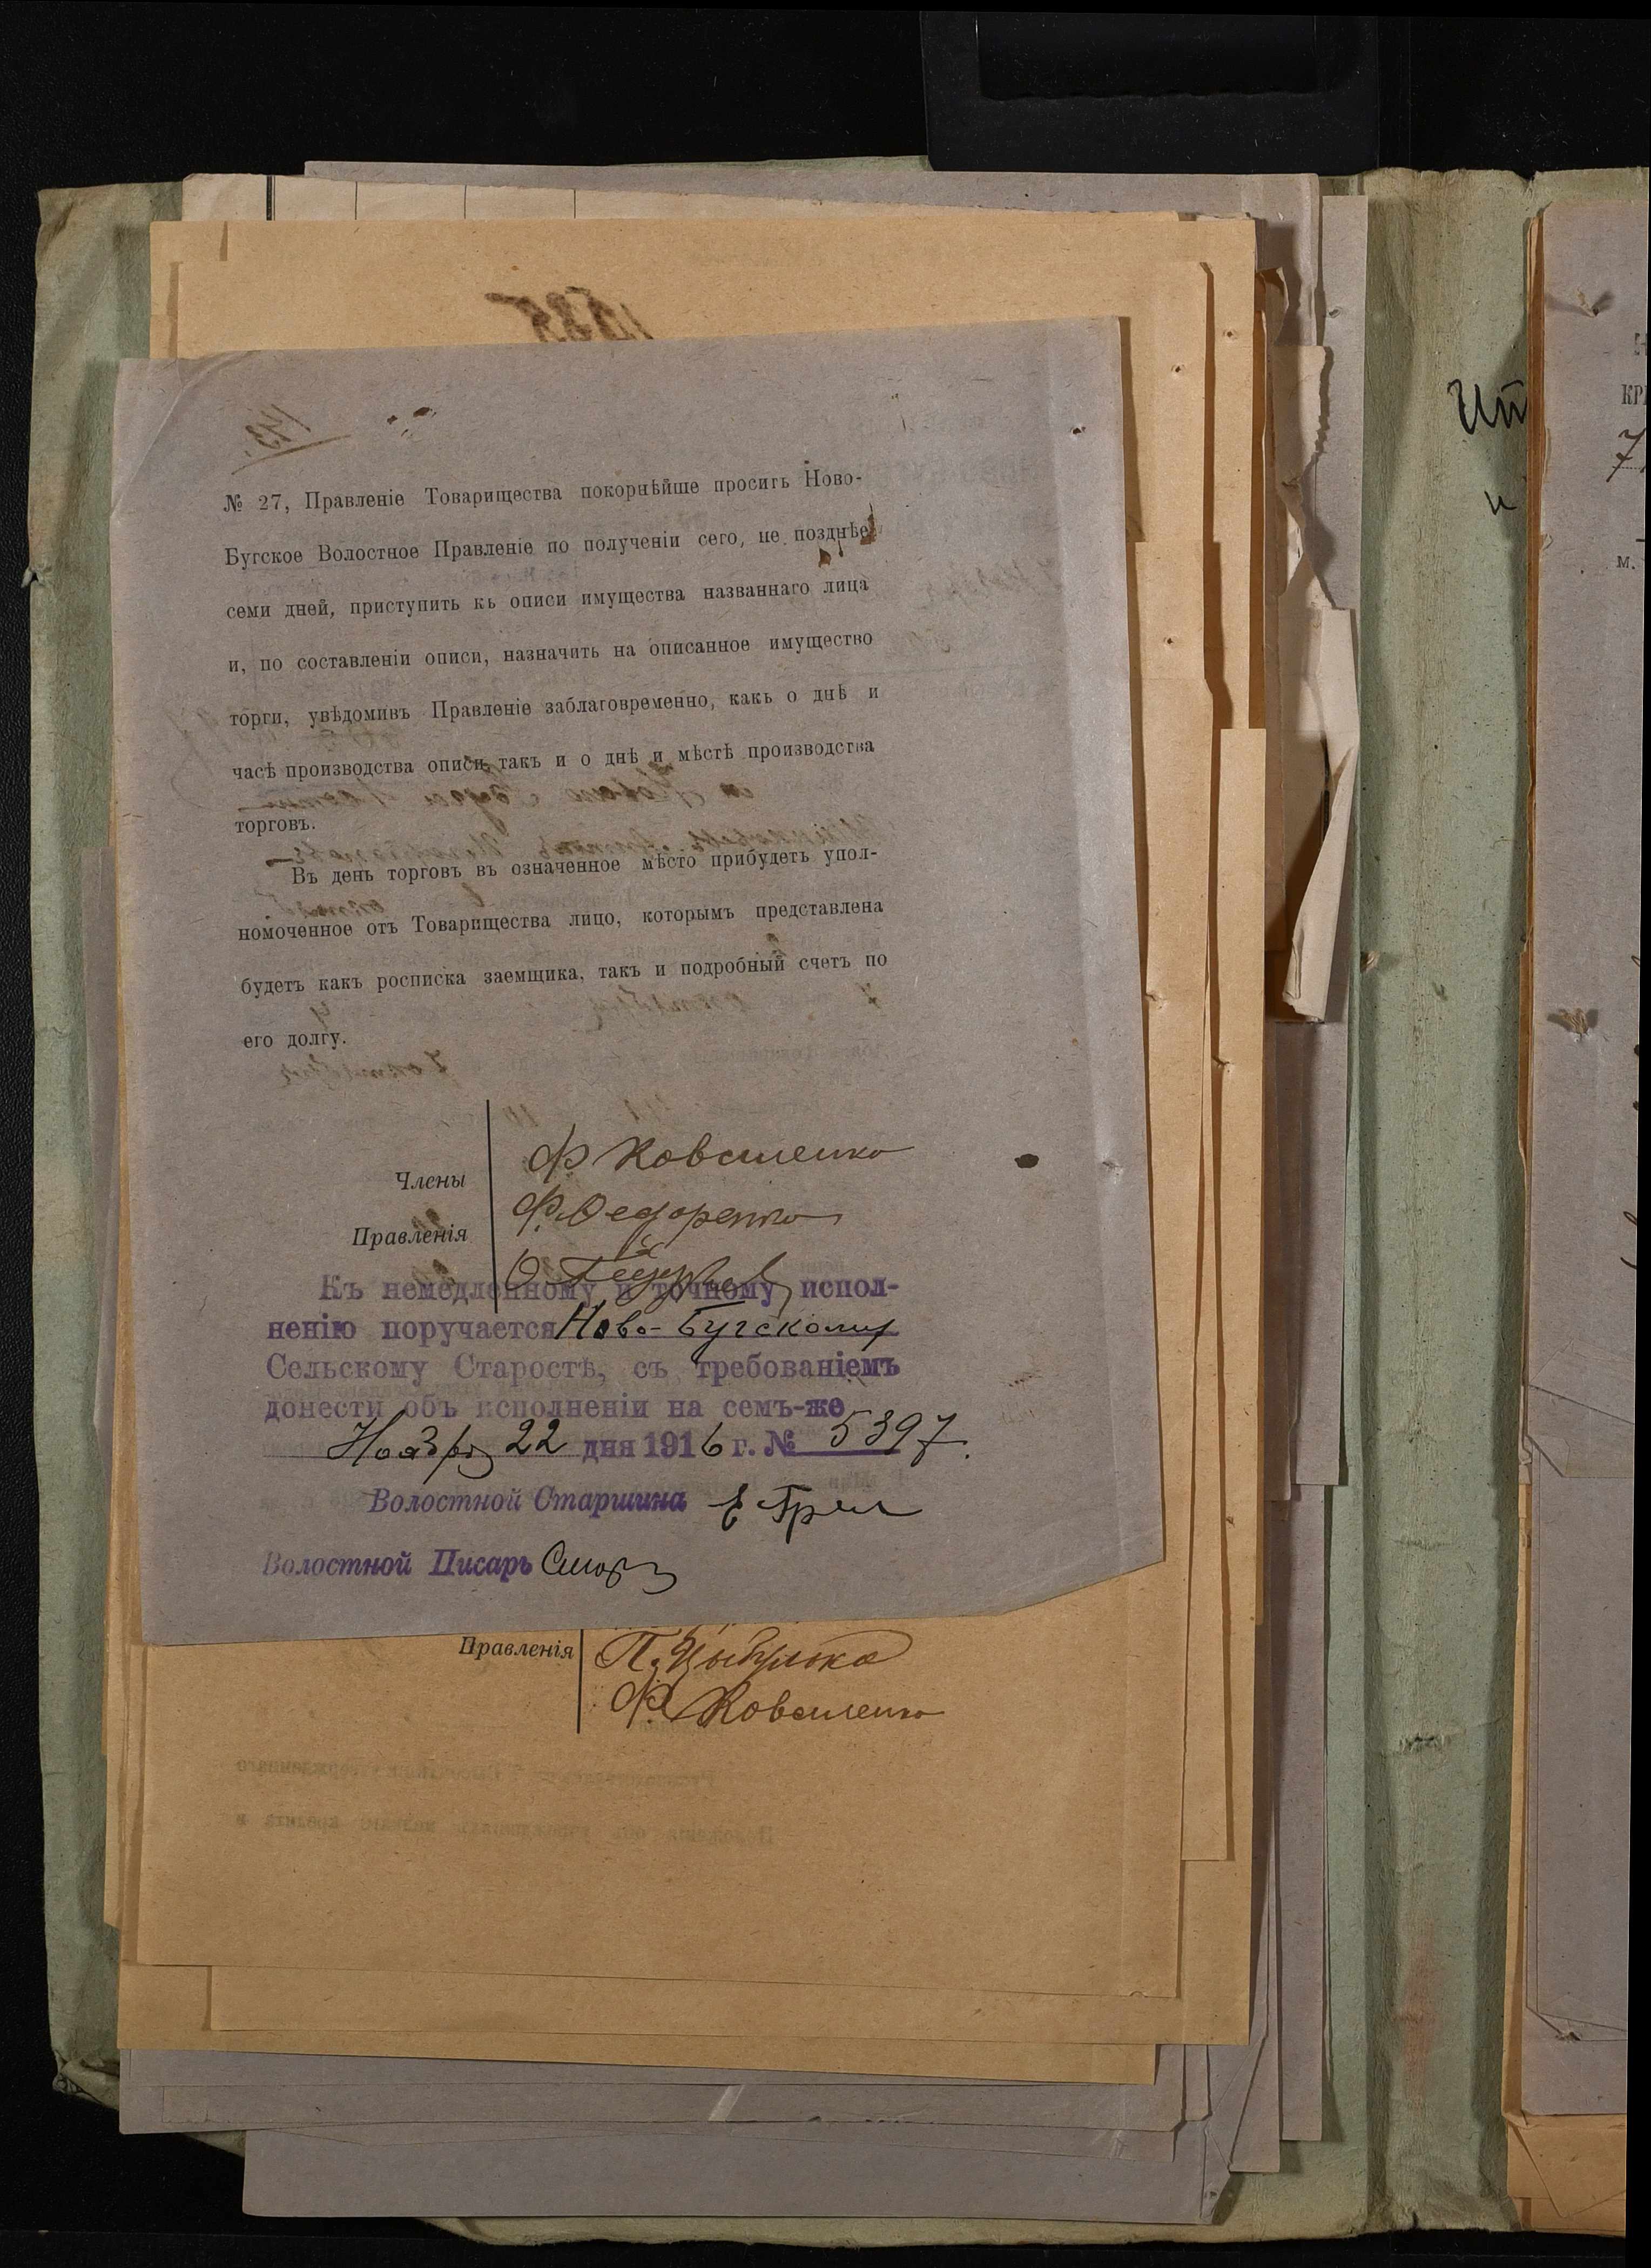 № 27, Правленіе Товарищества покорнѣйше проситъ Ново-
Бугское Волостное Правленіе по полученіи сего, не позднѣе
семи дней, приступить къ описи имущества названнаго лица
и, по составленіи описи, назначить на описанное имущество
торги, увѣдомивъ Правленіе заблаговременно, какъ о днѣ и
часѣ производства описи, такъ и о днѣ и мѣстѣ производства
торговъ.
Въ день торговъ въ означенное мѣсто прибудетъ упол-
номоченное отъ Товарищества лицо, которымъ представлена
будетъ какъ росписка заемщика, такъ и подробный счетъ по
его долгу.
Члены
Правленія
Ф Коваленко
Ф. Федоренко
Къ немедленному и точному испол-
ненію поручается Ново-Бугскому
Сельскому Старостѣ, съ требованіемъ
донести объ исполненіи на семъ-же
Ноября 22 дня 1916 г. № 5397.
Волостной Старшина
Волостной Писарь
Правленія
П. Цыбулька
Ф. Коваленко
Ит
КР
7
и
м.